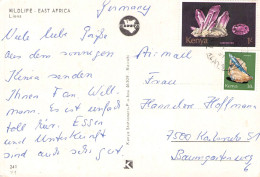 Germany
WILDLIFE - EAST AFRICA
Lions
Kenya
Viele liebe Grüße
aus dem sonnigen
Kenia senden
Ihnen Fam. Will-
mann. Es ist einfach
toll hier. Essen
und Unterkunft
sind auch sehr gut.
Air-mail
Frau
Hannelore Hoffmann
7500 Karlsruhe 51
Baumgartenweg
6